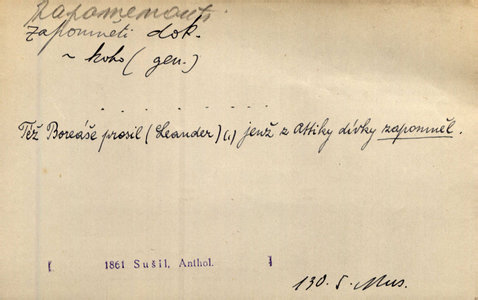 zapomenouti
zapomněti dok.
~ koho (gen.)
. . . . . . . . .
Též Boreáše prosil (Leander) (,) jenž z Attiky dívky zapomněl.
[ 1861 Sušil, Anthol. ]
130. S. Mus.